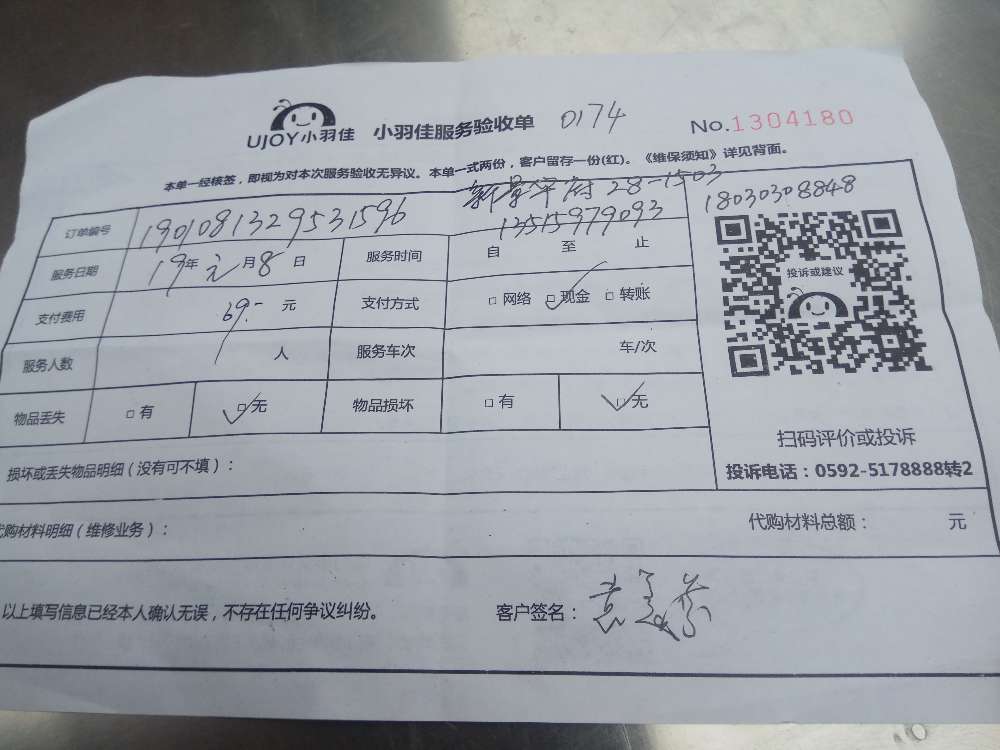 UJOY小羽佳 小羽佳服务验收单 0174 No.1304180
本单一经核签，即视为对本次服务验收无异议。本单一式两份，客户留存一份(红)。《维保须知》详见背面。
新景 府 28-1503
订单编号 1901081329531596 13515979093 18030308848
服务日期 19年元月8日 服务时间 自 至 止
投诉或建议
支付费用 69.- 元 支付方式 □网络 □现金 □转账
服务人数 1人 服务车次 车/次
物品丢失 □有 □无 物品损坏 □有 □无
扫码评价或投诉
损坏或丢失物品明细（没有可不填）：
投诉电话：0592-5178888转2
代购材料明细（维修业务）： 代购材料总额： 元
以上填写信息已经本人确认无误，不存在任何争议纠纷。 客户签名：